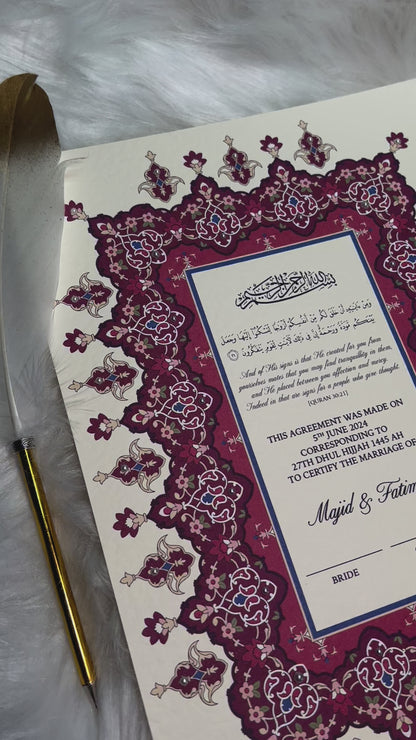 بسم الله الرحمن الرحيم
وَمِنْ آيَاتِهِ أَنْ خَلَقَ لَكُم مِّنْ أَنفُسِكُمْ أَزْوَاجًا لِّتَسْكُنُوا إِلَيْهَا وَجَعَلَ
بَيْنَكُم مَّوَدَّةً وَرَحْمَةً إِنَّ فِي ذَٰلِكَ لَآيَاتٍ لِّقَوْمٍ يَتَفَكَّرُونَ
And of His signs is that He created for you from
yourselves mates that you may find tranquillity in them,
and He placed between you affection and mercy.
Indeed in that are signs for a people who give thought.
[QURAN 30:21]
THIS AGREEMENT WAS MADE ON
5TH JUNE 2024
CORRESPONDING TO
27TH DHUL HIJJAH 1445 AH
TO CERTIFY THE MARRIAGE OF
Majid & Fatim
BRIDE